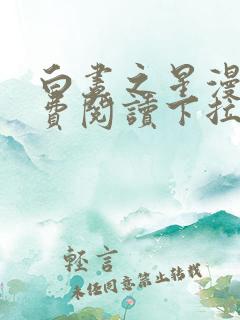 白晝之星漫
費閱讀下拉
輕言
未任同意禁止转载